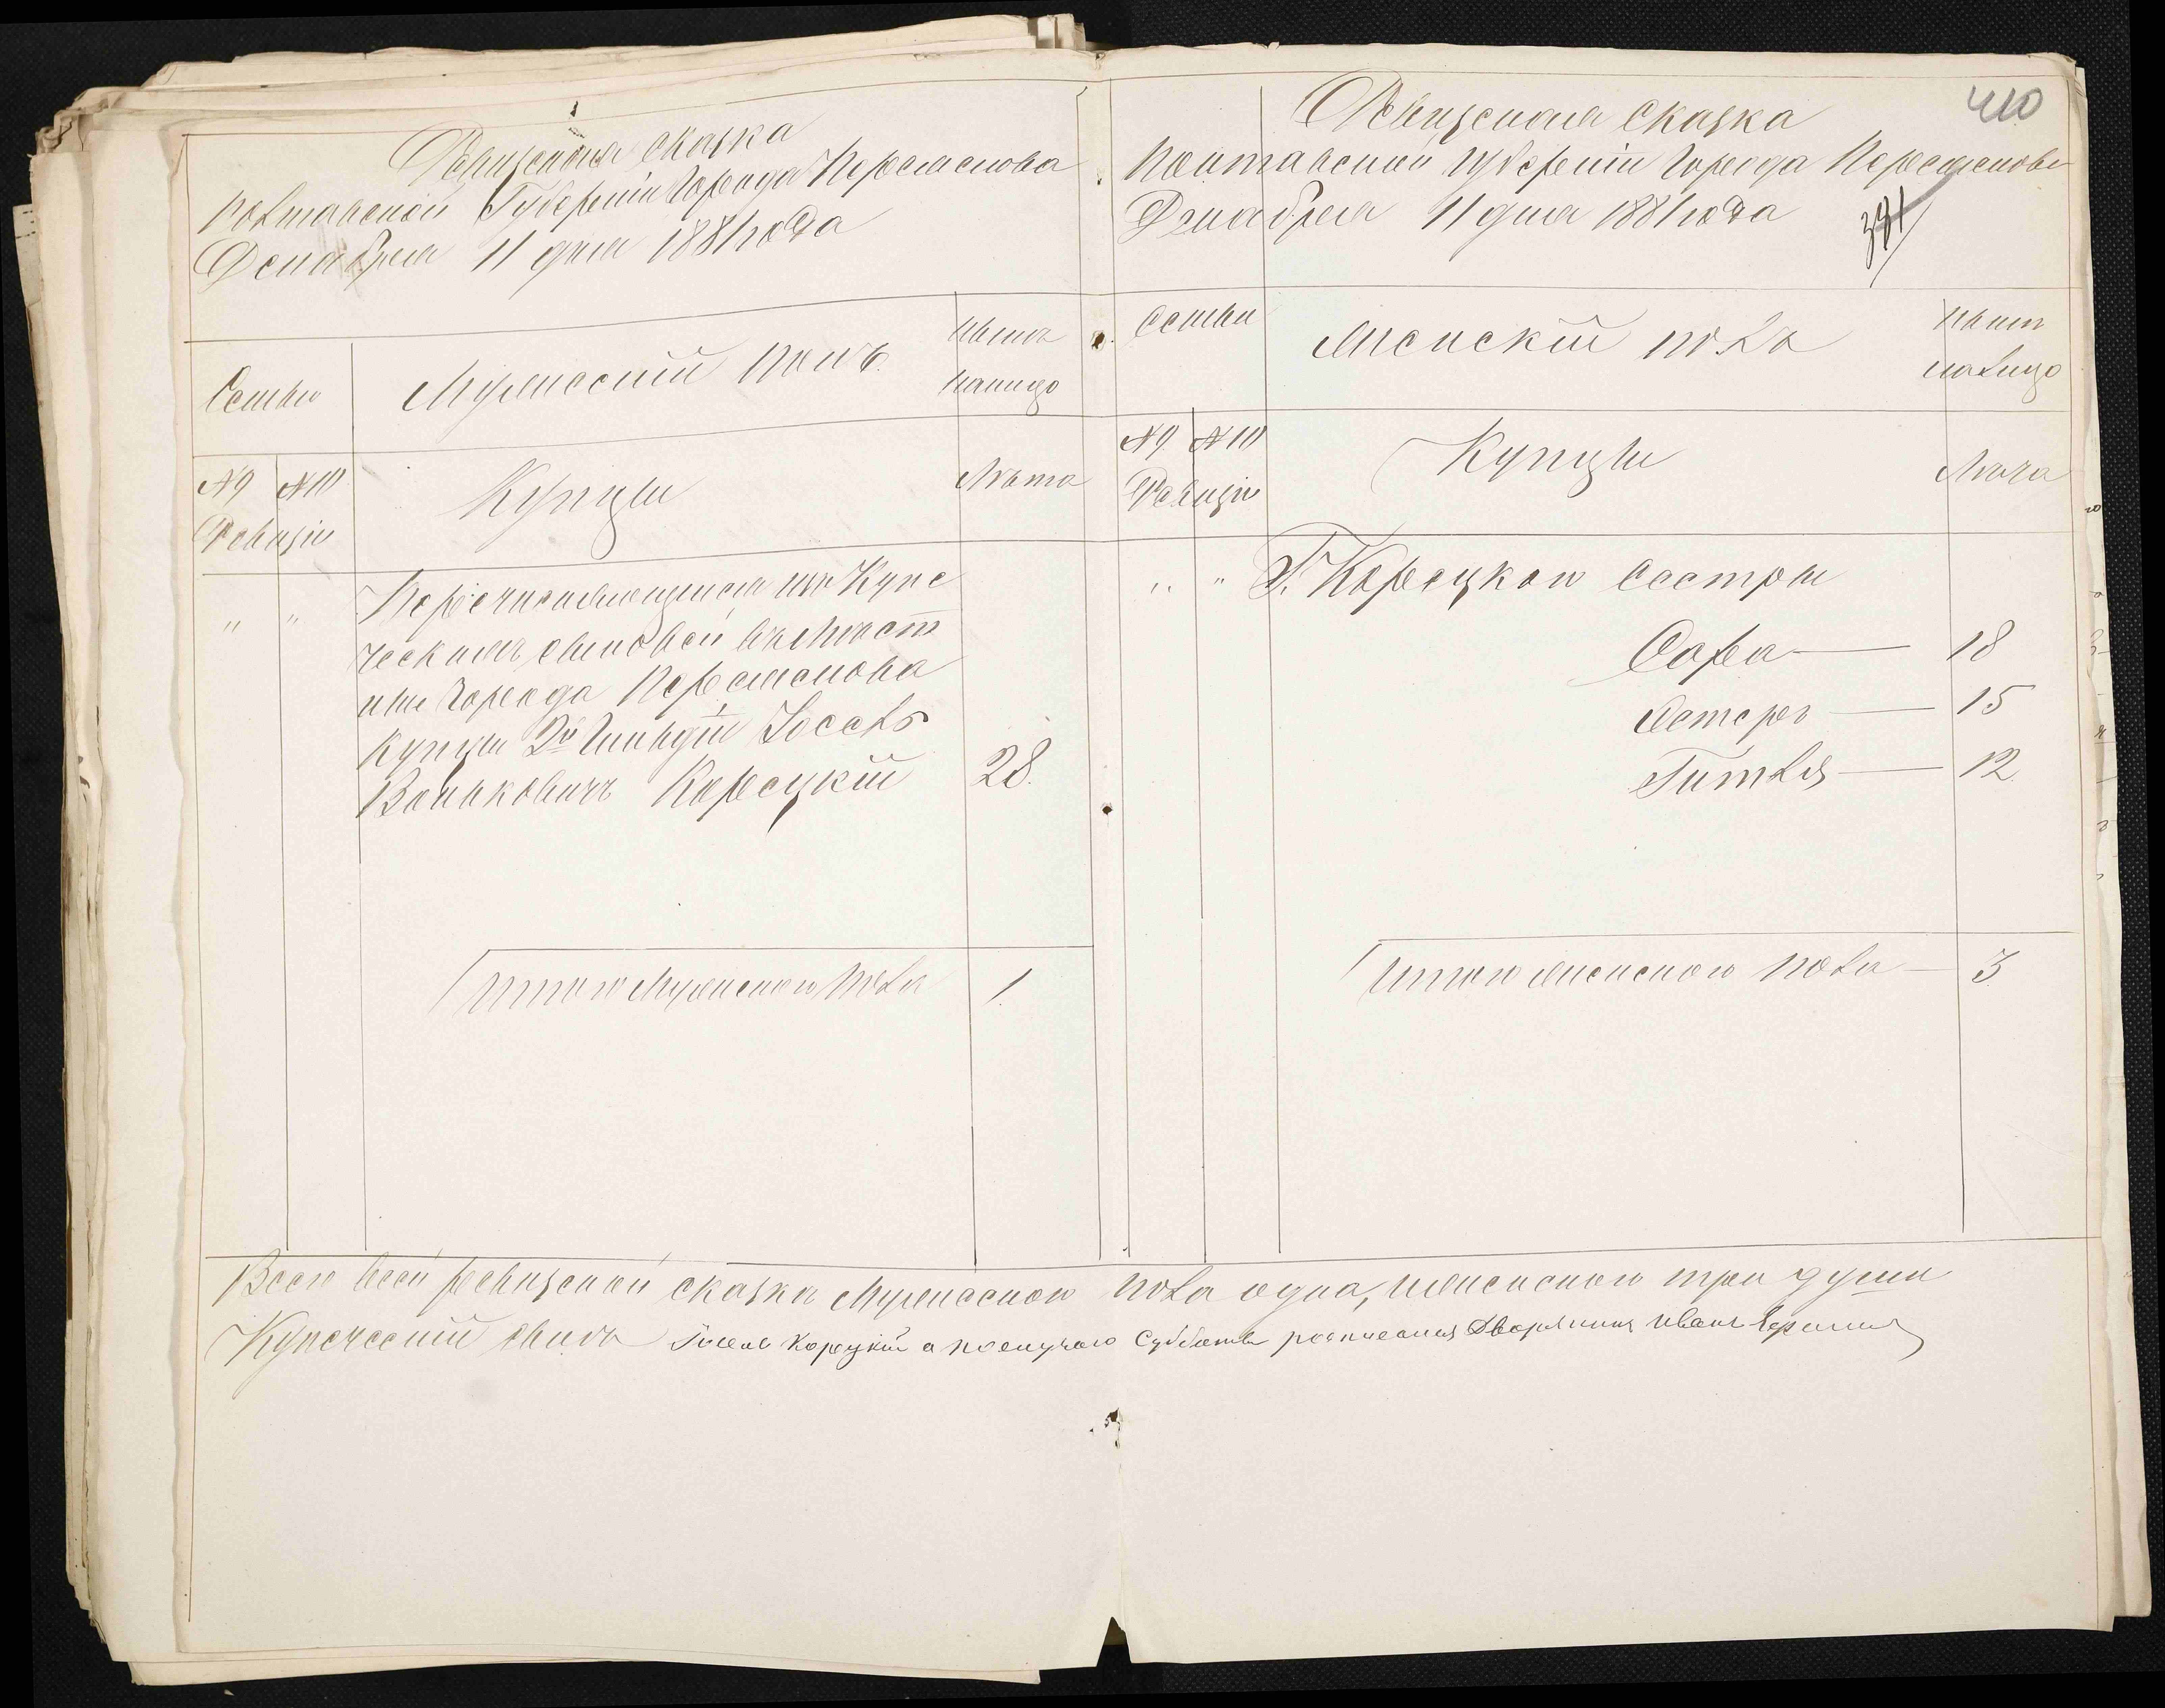 Ревизская Сказка
Полтавской Губерніи Города Переяслова
Декабря 11 дня 1881 года
Семьи
Мужеский полъ
налицо
№9 №10
Ревизіи
Купцы
Лѣта
" "
Перечисляющися изъ Купе
ческихъ сыновей въ Мѣст
ные Города Переяслова
купцы 2й Гильдіи Іосель
Вольковичъ Корецкій 28.
Итого Мужеского Пола 1.
410
Ревизская Сказка
Полтавской Губерніи Города Переяслова
Декабря 11 дня 1881 года
391
Семьи
Женскій полъ
налицо
№9 №10
Ревизіи
Купцы
Лѣта
" " І. Корецкаго Сестры
Сара — 18
Естеръ — 15
Гитля — 12
Итого женского пола — 3
Всего всей ревизской сказкѣ Мужеского пола одна, женского три души
Купеческій сынъ Іосель Корецкій а по случаю Субботы росписался Дворянинъ Иванъ